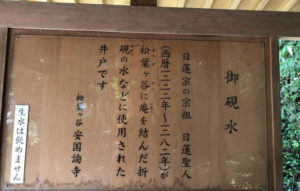 御硯水
日蓮宗の宗祖 日蓮聖人
(西暦一二二二年~一二八二年)が
松葉ヶ谷に庵を結んだ折
硯の水などに使用された
井戸です
松葉ヶ谷 安国論寺
生水は飲めません